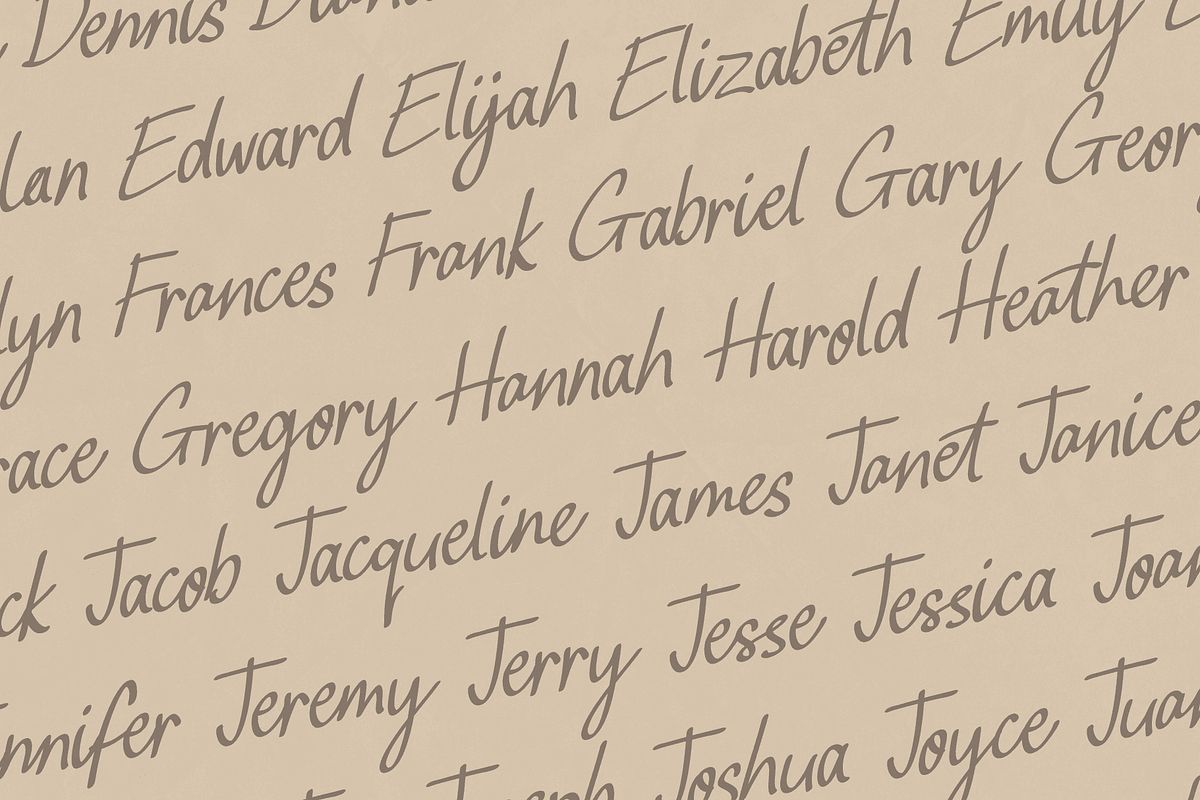 Dennis
lan Edward Elijah Elizabeth Emily
lyn Frances Frank Gabriel Gary Geor
race Gregory Hannah Harold Heather
ck Jacob Jacqueline James Janet Janice
nnifer Jeremy Jerry Jesse Jessica Joan
Joshua Joyce Juan